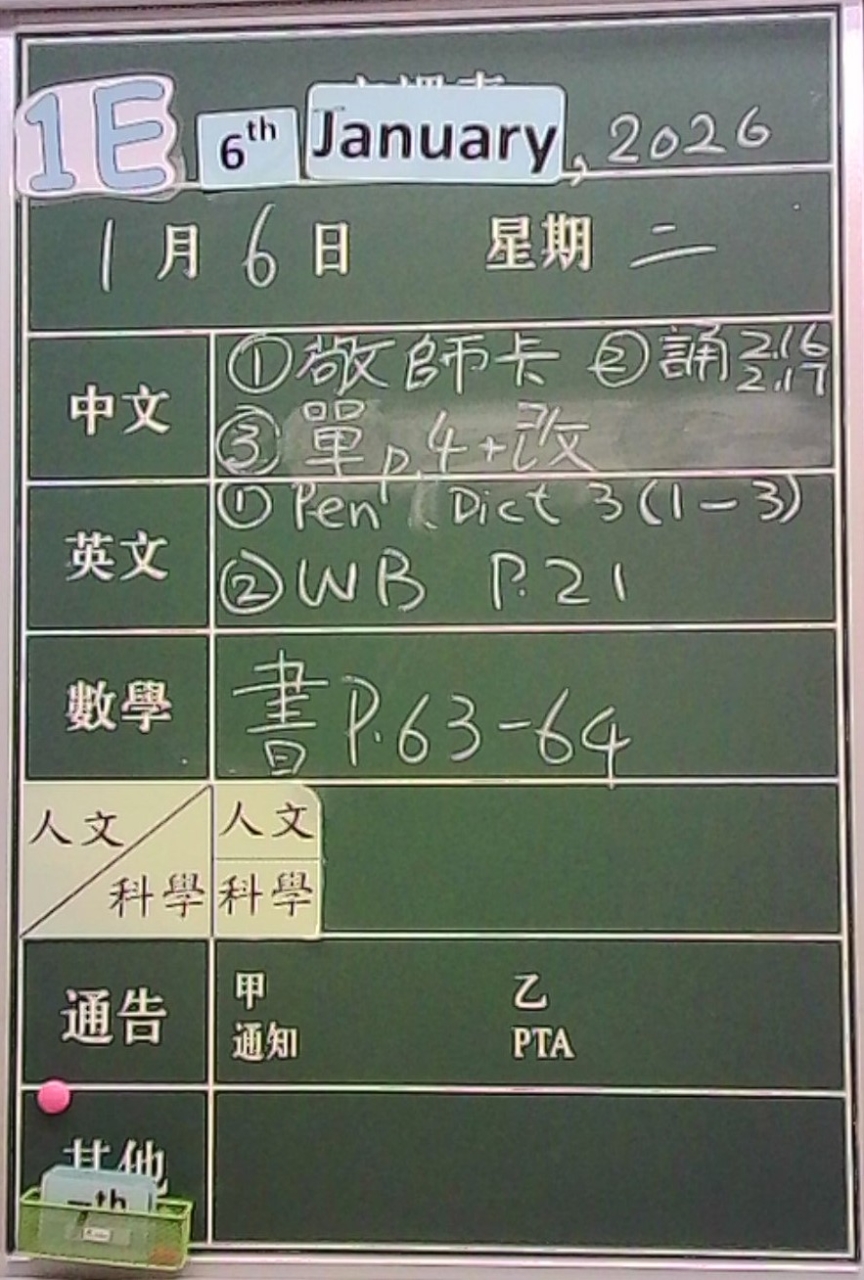 1E 6th January, 2026
1月6日 星期二
中文 ①敬師卡 ②誦 2.16 2.17
③單p.4+改
英文 ① Pen Dict 3 (1-3)
② WB P.21
數學 書 P.63-64
人文 人文
科學 科學
通告 甲 乙
通知 PTA
其他
th